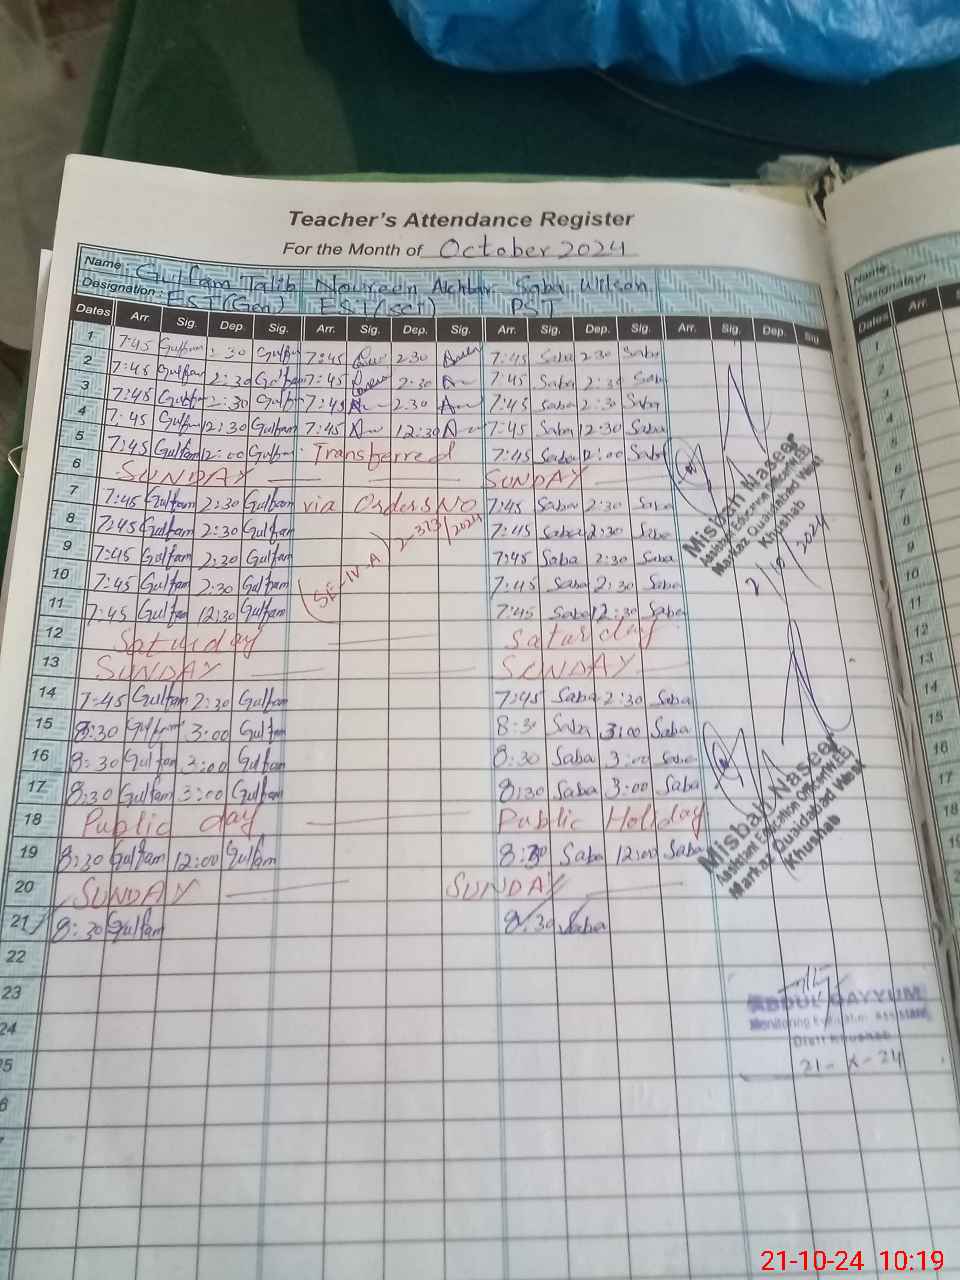 Teacher's Attendance Register
For the Month of October 2024
Name: Gulfam Talib Nowreen Akhtar Saba Wilson
Designation: EST(Gen) EST(sci) PST
Dates Arr. Sig. Dep. Sig. Arr. Sig. Dep. Sig. Arr. Sig. Dep. Sig. Arr. Sig. Dep. Sig
1 7:45 Gulfam 2:30 Gulfam 7:45 2:30 7:45 Saba 2:30 Saba
2 7:45 Gulfam 2:30 Gulfam 7:45 2:30 7:45 Saba 2:30 Saba
3 7:45 Gulfam 2:30 Gulfam 7:45 2:30 7:45 Saba 2:30 Saba
4 7:45 Gulfam 12:30 Gulfam 7:45 12:30 7:45 Saba 12:30 Saba
5 7:45 Gulfam 12:00 Gulfam Transferred 7:45 Saba 12:00 Saba
6 SUNDAY SUNDAY
7 7:45 Gulfam 2:30 Gulfam via Orders NO 7:45 Saba 2:30 Saba
8 7:45 Gulfam 2:30 Gulfam 2-373/2024 7:45 Saba 2:30 Saba
9 7:45 Gulfam 2:30 Gulfam (SE-IV-A) 7:45 Saba 2:30 Saba
10 7:45 Gulfam 2:30 Gulfam 7:45 Saba 2:30 Saba
11 7:45 Gulfam 12:30 Gulfam 7:45 Saba 12:30 Saba
12 Saturday Saturday
13 SUNDAY SUNDAY
14 7:45 Gulfam 2:30 Gulfam 7:45 Saba 2:30 Saba
15 8:30 Gulfam 3:00 Gulfam 8:30 Saba 3:00 Saba
16 8:30 Gulfam 3:00 Gulfam 8:30 Saba 3:00 Saba
17 8:30 Gulfam 3:00 Gulfam 8:30 Saba 3:00 Saba
18 Public day Public Holiday
19 8:30 Gulfam 12:00 Gulfam 8:30 Saba 12:00 Saba
20 SUNDAY SUNDAY
21 8:30 Gulfam 8:30 Saba
22
23
24
25
Misbah Naseer
Assistant Education Officer(WEE)
Markaz Quaidabad West
Khushab
2/10/2024
Misbah Naseer
Assistant Education Officer(WEE)
Markaz Quaidabad West
Khushab
ABDUL QAYYUM
Monitoring Evaluation Assistant
Distt Khushab
21-X-24
Name:
Designation
Dates Arr.
1
2
3
4
5
6
7
8
9
10
11
12
13
14
15
16
17
18
19
21-10-24 10:19